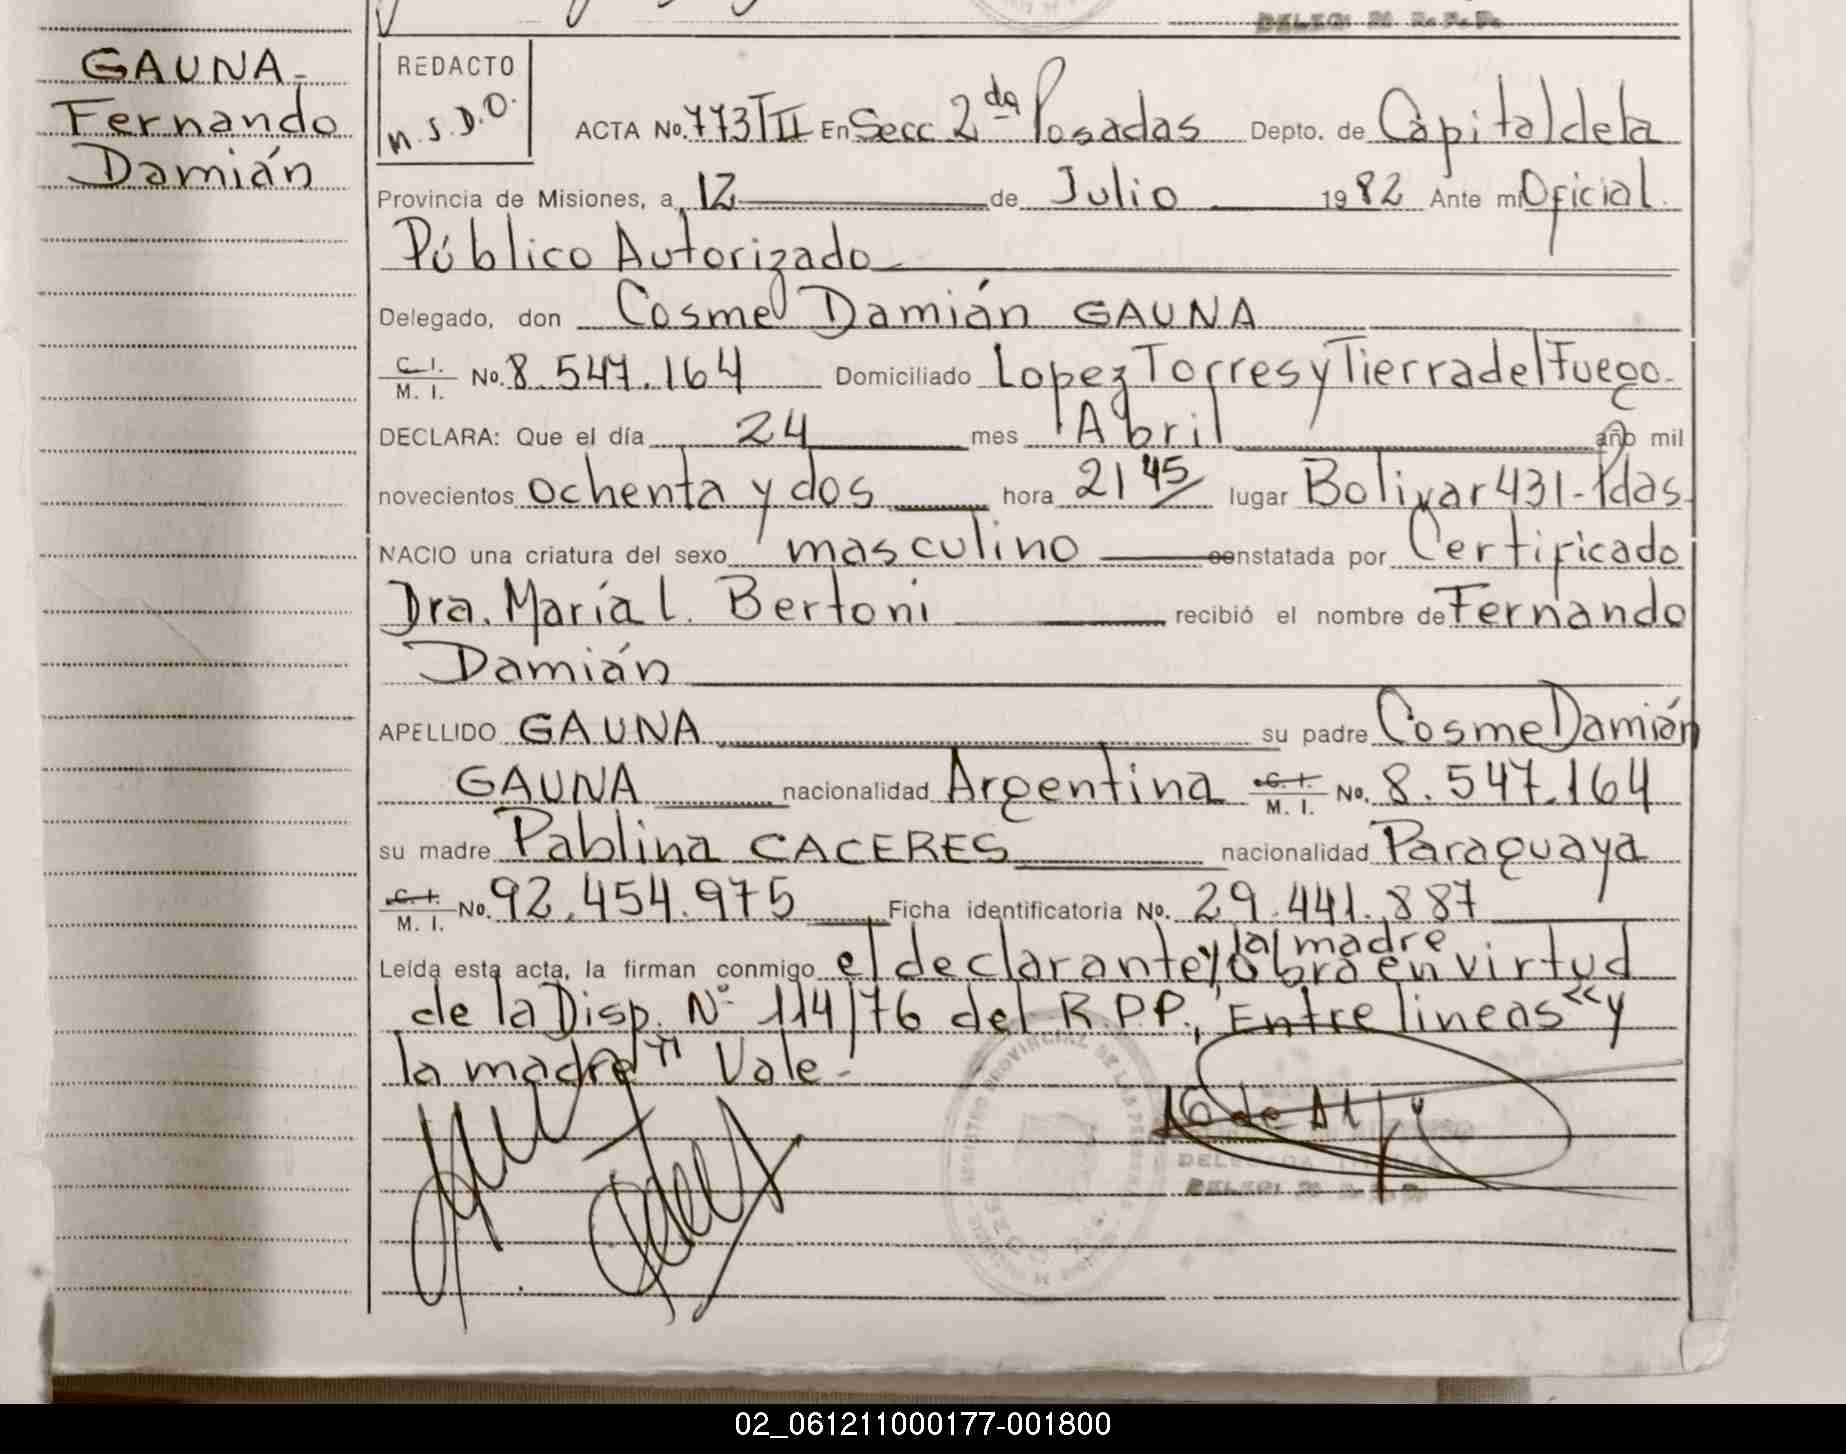 GAUNA-
Fernando
Damián
REDACTO
M.S.D.O.
ACTA No. 773 TII En Secc 2da Posadas Depto. de Capital de la
Provincia de Misiones, a 12 de Julio 1982 Ante mi Oficial
Público Autorizado
Delegado, don Cosme Damián GAUNA
C. I. M. I. No. 8.547.164 Domiciliado Lopez Torres y Tierra del Fuego.
DECLARA: Que el día 24 mes Abril año mil
novecientos ochenta y dos hora 21 45 lugar Bolivar 431-Pdas.
NACIO una criatura del sexo masculino constatada por Certificado
Dra. María L. Bertoni recibió el nombre de Fernando
Damián
APELLIDO GAUNA su padre Cosme Damián
GAUNA nacionalidad Argentina C. I. M. I. No. 8.547.164
su madre Pablina CACERES nacionalidad Paraguaya
C. I. M. I. No. 92.454.975 Ficha identificatoria No. 29.441.887
Leída esta acta, la firman conmigo el declarante y la madre obra en virtud
de la Disp. N° 114/76 del R.P.P., Entre lineas "y
la madre" Vale-
REGISTRO PROVINCIAL DE LAS PERSONAS
02_061211000177-001800